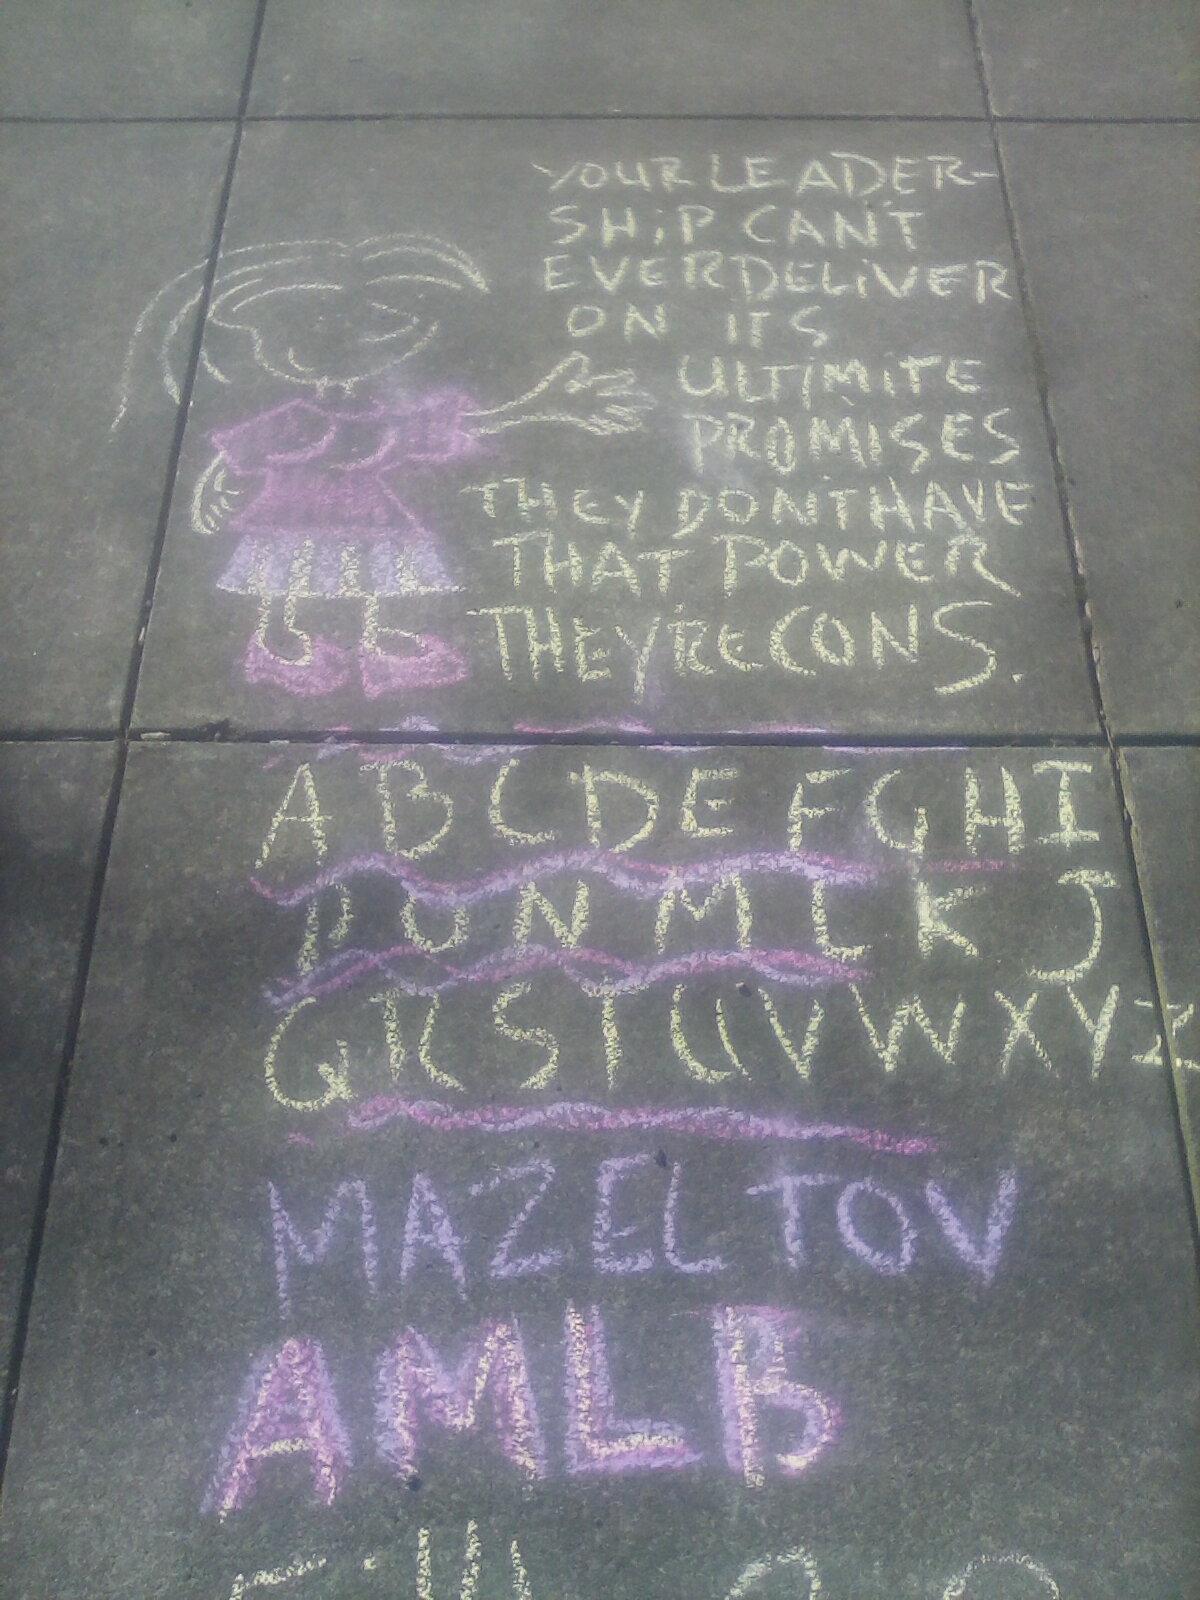 YOUR LEADER-
SHiP CAN'T
EVER DELiVER
ON ITS
ULTiMiTE
PROMiSES
THEY DON'T HAVE
THAT POWER
THEY'RE CONS.
A B C D E F G H I
P O N M L K J
Q R S T U V W X Y Z
MAZEL TOV
AMLB